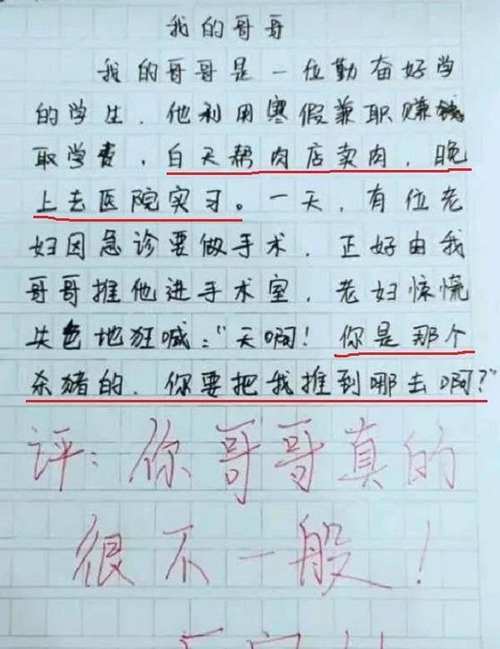 我的哥哥
我的哥哥是一位勤奋好学
的学生．他利用寒假兼职赚钱
取学费，白天帮肉店卖肉，晚
上去医院实习。一天，有位老
妇因急诊要做手术．正好由我
哥哥推他进手术室，老妇惊慌
失色地狂喊："天啊！你是那个
杀猪的．你要把我推到哪去啊？"
评：你哥哥真的
很不一般！